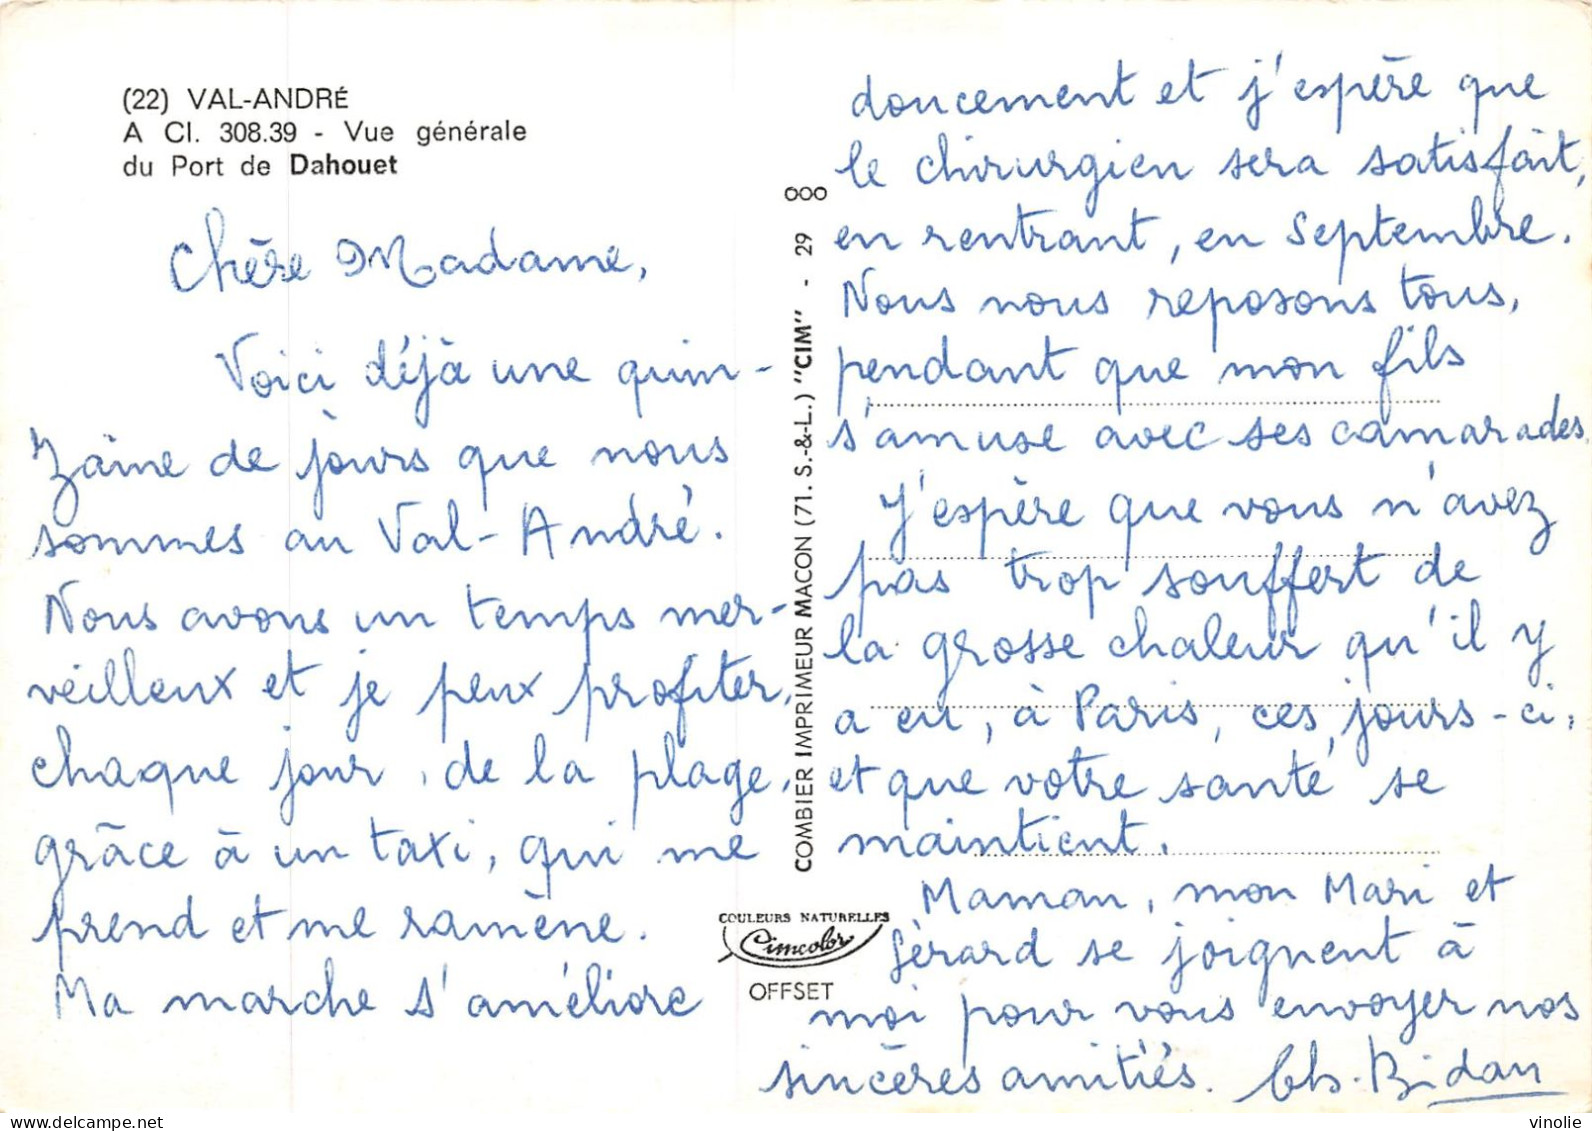 (22) VAL-ANDRÉ
A Cl. 308.39 - Vue générale
du Port de Dahouet
Chère Madame,
Voici déjà une quin-
zaine de jours que nous
sommes au Val-André.
Nous avons un temps mer-
veilleux et je peux profiter,
chaque jour, de la plage,
grâce à un taxi, qui me
prend et me ramène.
Ma marche s'améliore
doucement et j'espère que
le chirurgien sera satisfait,
en rentrant, en Septembre.
Nous nous reposons tous,
pendant que mon fils
s'amuse avec ses camarades.
J'espère que vous n'avez
pas trop souffert de
la grosse chaleur qu'il y
a eu, à Paris, ces jours-ci,
et que votre santé se
maintient.
Maman, mon Mari et
Gérard se joignent à
moi pour vous envoyer nos
sincères amitiés. Ch. Bidan
COMBIER IMPRIMEUR MACON (71. S.-&-L.) "CIM" - 29
000
COULEURS NATURELLES
Cimcolor
OFFSET
vinolie